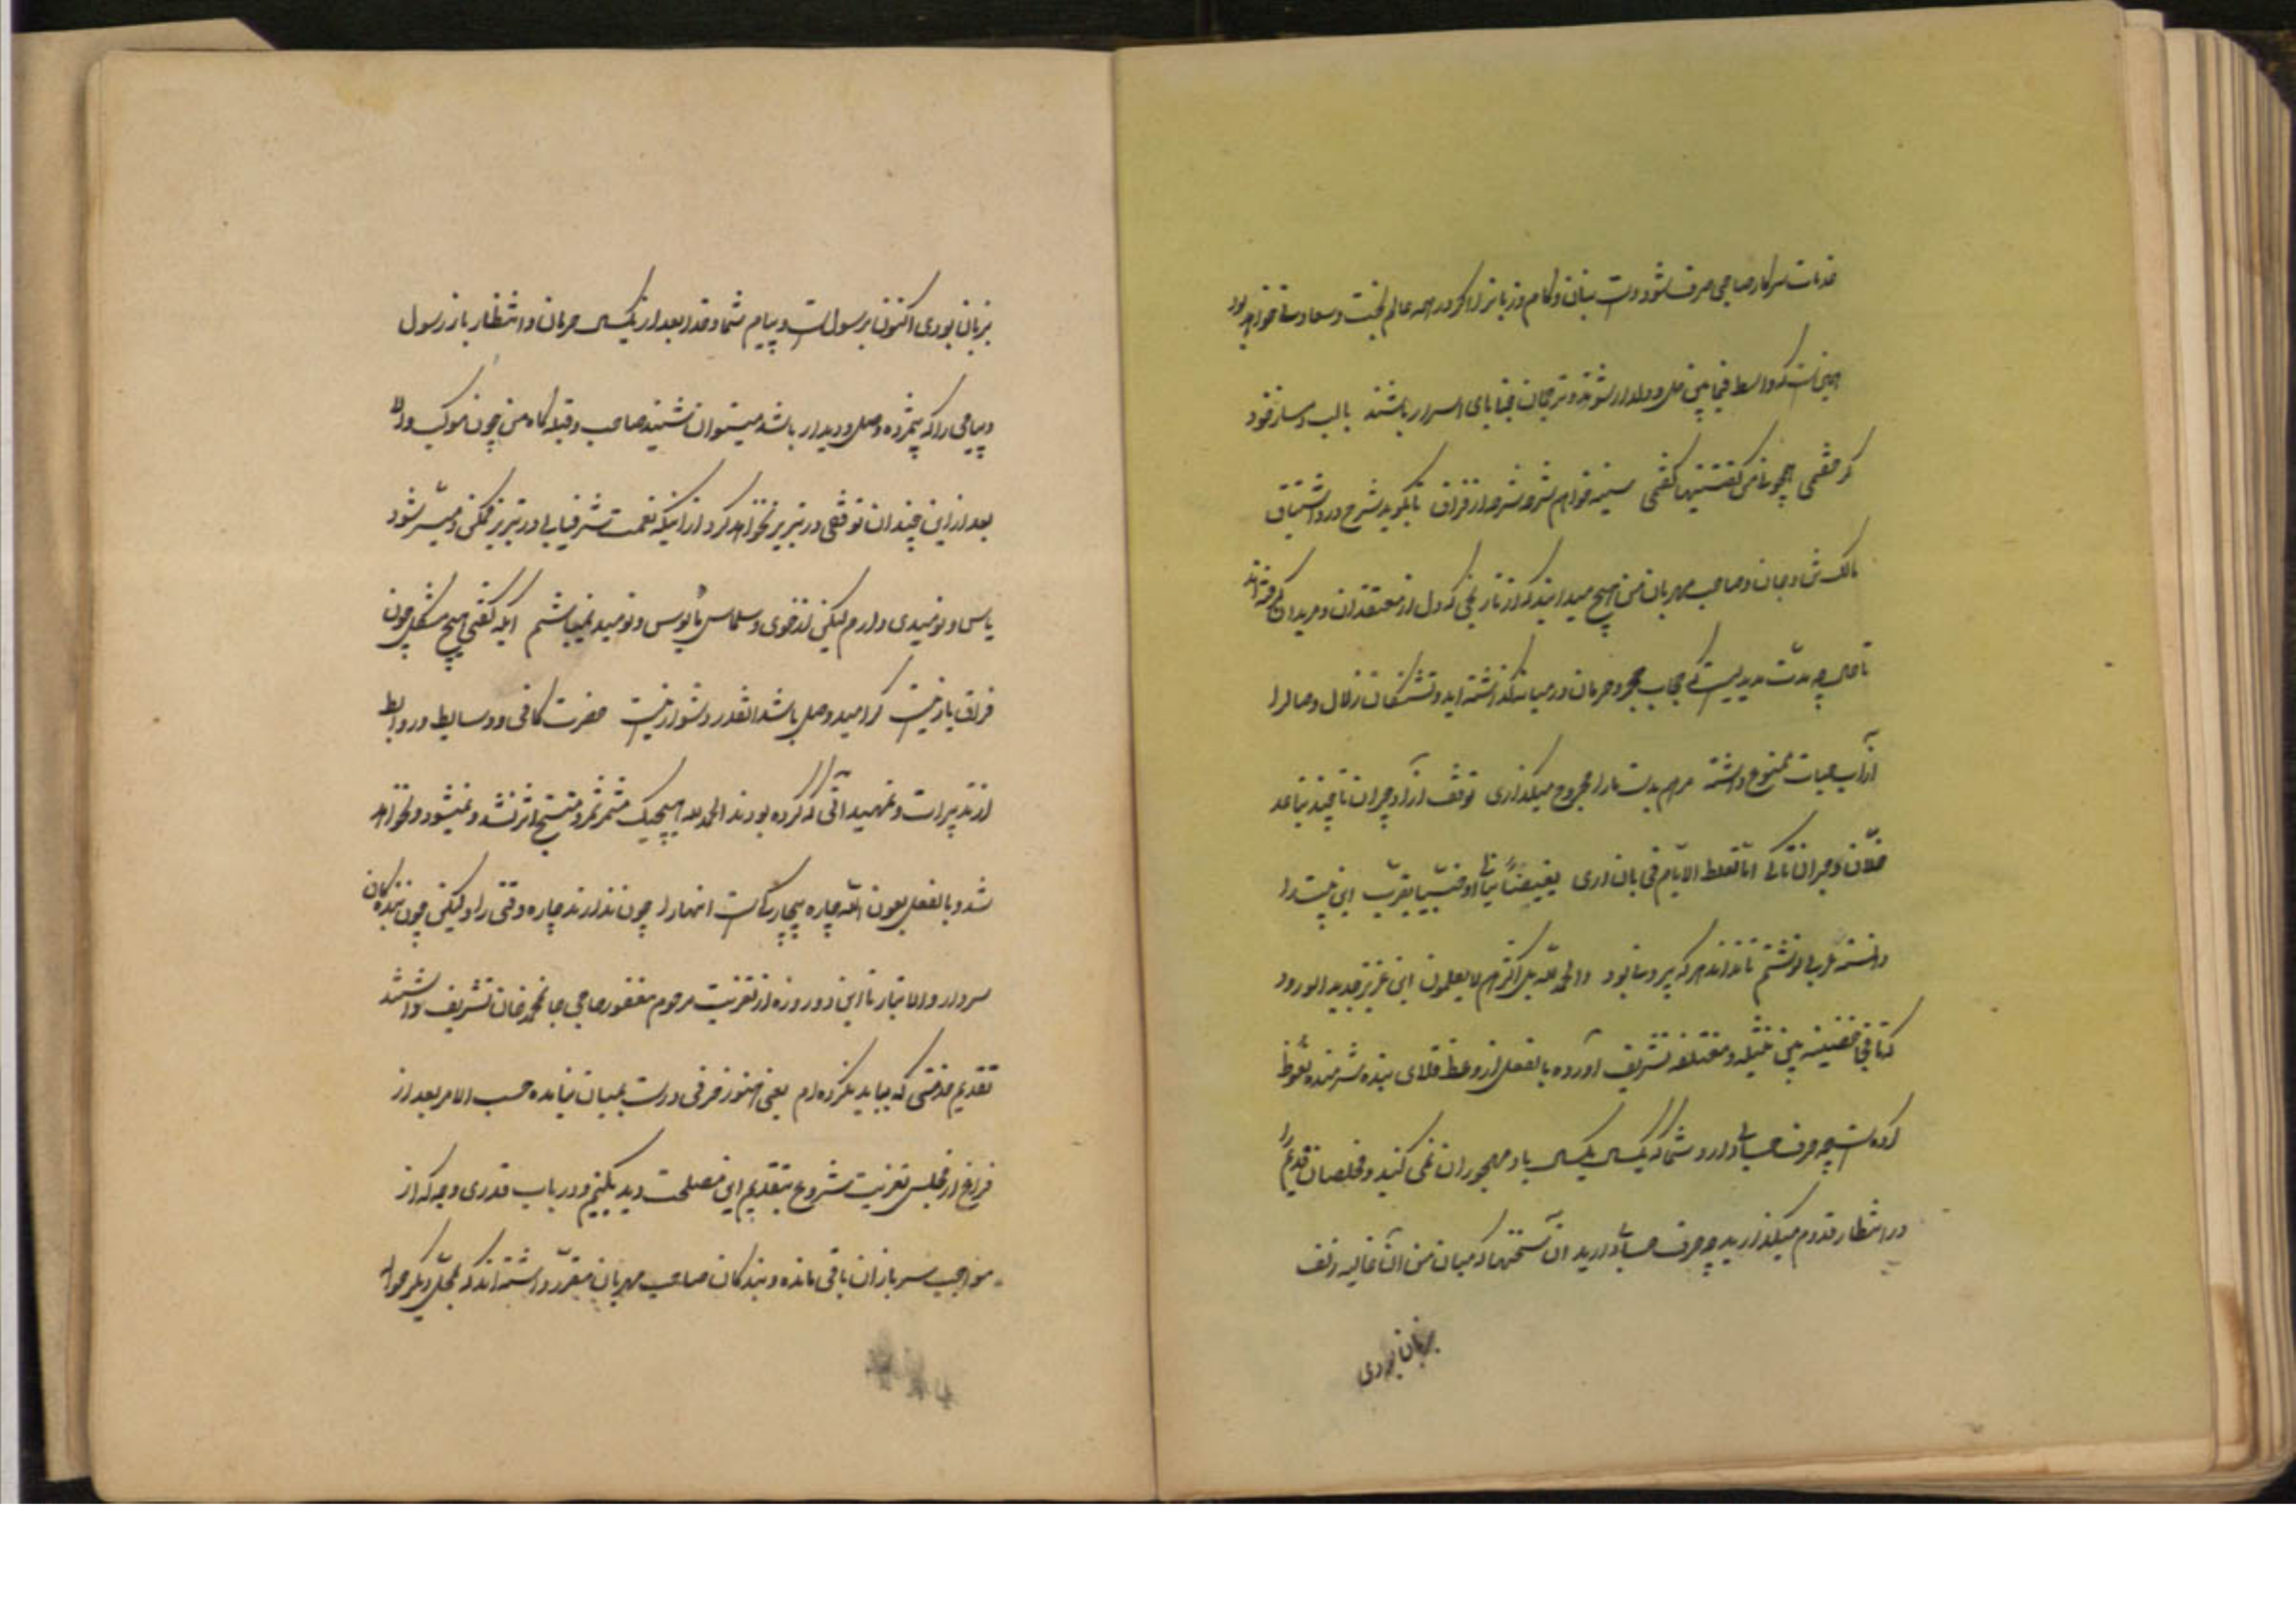 خدمات سرکار صاحبی صرف شود دست و بنان و کام و زبانرا اگر در همه عالم بخت و سعادتی خواهد بود
همین است که واسطه فیمابین دل و دلدار شوند و ترجمان خبایای اسرار باشند با لب دمساز خود
گر جفتمی همچو نی من گفتنیها گفتمی سینه خواهم شرحه شرحه از فراق تا بگوید شرح درد اشتیاق
مالک دل و جان و صاحب مهربان من هیچ میدانید که از تاریخی که دل از معتقدان و مریدان گرفته‌اند
تا حال چه مدت مدیدیست که حجاب هجر و حرمان در میانه گذاشته‌اید و تشنگان زلال وصال را
از آب حیات ممنوع داشته مرهم بدست و ما را مجروح میگذاری توقف آزاد چو ان تا چند تباعد
خلان و هجران تا کی اما تغلط الایام فی بان اری بغیضا تنائی او حبیبا تقرب این بیت را
دانسته عربی نوشتم تا نداند هر که بی‌پروا بود والحمد لله بل اکثرهم لا یعلمون این عزیز جدید الورود
که تا فجا خفیفه بین مثیله و معتلفه تشریف آورده بالفعل از وعظ قلای بنده شرمنده محظوظ
کرده است چه حرف حسابی دارد شما که یکسال یکسال یاد مهجوران نمی کنید و مخلصان قدیم را
در انتظار قدوم میگذارید چه حرف حسابی دارید آن سختها که میان من و آن غالیه زلف
بزبان بودی
بزبان بودی اکنون برسول است و پیام شما و قدر بعد از یکسال حرمان و انتظار باز رسول
و پیامی را که مژده وصل و دیدار باشد میتوان شنید صاحب و قبله گاه من چون موکب والا
بعد از این چندان توقفی در تبریز نخواهد کرد از اینکه نعمت شرفیابی در تبریز ممکن و میسر شود
یاس و نومیدی دارم لیکن از خوی و سلماس مأیوس و نومید نمیباشم ایکه گفتی هیچ مشکل چون
فراق یار نیست گر امید وصل باشد آنقدر دشوار نیست حضرت کافی و وسایط و روابط
از تدبیرات و تمهیداتی که کرده بودند الحمد لله هیچیک مثمر ثمر و منتج اثر نشد و نمیشود و نخواهد
شد و بالفعل بعون الله چاره بیچارگیست اینها را چون ندارند چاره وقتی را و لیکن چون بندگان
سردار والاتبار تا این دو روزه از تعزیت مرحوم مغفور حاجی جانمحمد خان تشریف داشتند
تقدیم خدمتی که بباید نکرده‌ام یعنی هنوز حرفی درست بمیان نیامده حسب الامر بعد از
فراغ از مجلس تعزیت شروع بتقدیم این مصلحت دید بکنیم و در باب قدری وجه که از
مواجب سربازان باقی مانده و بندگان صاحب مهربان مقرر داشته‌اند که بمحل دیگر حواله